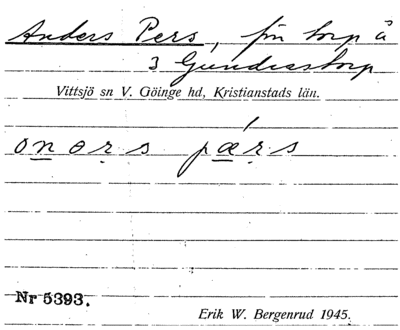 Anders Pers, fin torp å
3 Gundrastorp
Vittsjö sn V. Göinge hd, Kristianstads län.
onərs pǽrs
Nr 5393.
Erik W. Bergenrud 1945.